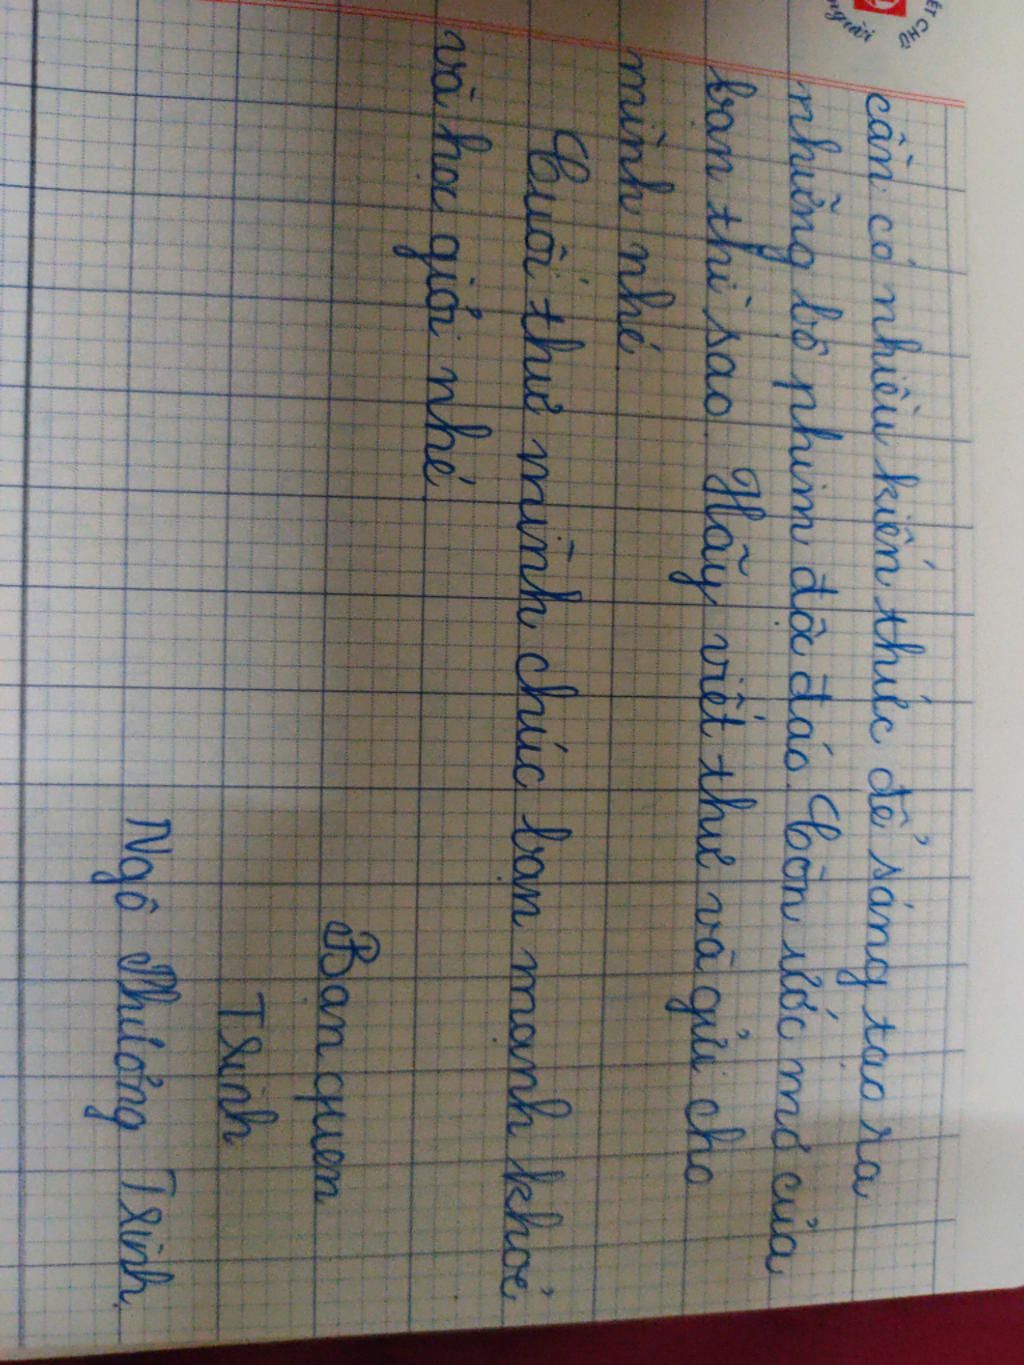 ẾT CHỮ
người
cần có nhiều kiến thức để sáng tạo ra
những bộ phim độc đáo. Còn ước mơ của
bạn thì sao. Hãy viết thư và gửi cho
mình nhé.
Cuối thư mình chúc bạn mạnh khoẻ
và học giỏi nhé.
Bạn quen
Trinh
Ngô Phương Trinh.